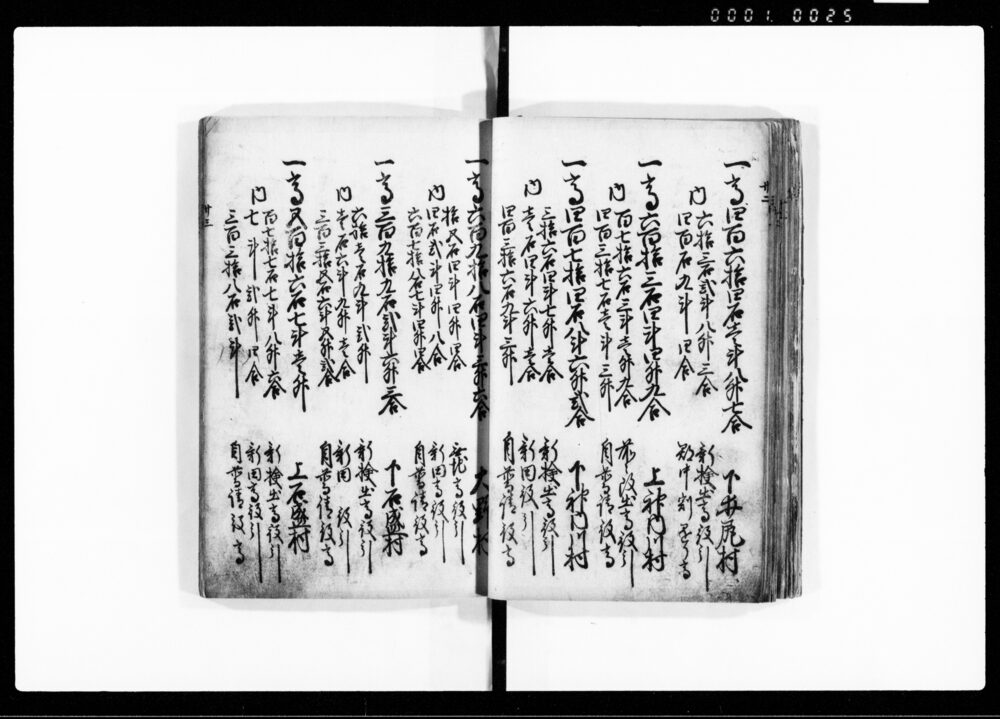 0001. 0025
廿二
一高四百六拾四石壱斗八升七合 下井尻村
内
六拾三石弐斗八升三合 新検出高役引
四百石九斗四合 郡中割
一高六百拾三石四斗四升九合 上神内川村
内
百七拾六石三斗壱升九合 改出高役引
四百三拾七石壱斗三升 自普請役高
一高四百七拾四石八斗六升弐合 下神内川村
内
三拾六石四斗七升壱合 新検出高役引
壱石四斗六升壱合 新田役引
四百三拾六石九斗三升 自普請役高
一高六百九拾八石四斗三升六合 大野村
内
拾五石四斗四升四合 高役引
四石弐斗四升八合 新田高役引
六百七拾八石七斗四升四合 自普請役高
一高三百九拾九石弐斗六升三合 下石森村
内
六拾壱石九斗弐升 新検出高役引
壱石六斗九升壱合 新田 役引
三百三拾五石六斗五升弐合 自普請役高
一高五百拾六石七斗壱升 上石森村
内
百七拾七石七斗八升六合 新検出高役引
七斗弐升四合 新田高役引
三百三拾八石弐斗 自普請役高
廿三